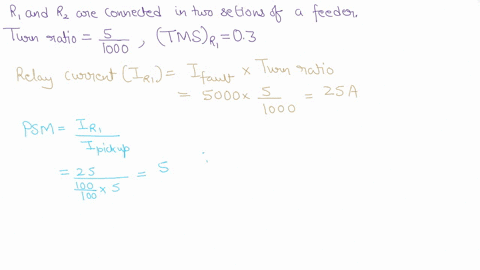 R₁ and R₂ are connected in two setions of a feeder.
Turn ratio = 5/1000 , (TMS)R₁ = 0.3
Relay current (IR₁) = Ifault × Turn ratio
= 5000 × 5/1000 = 25A
PSM = IR₁/Ipickup
= 25/(100/100 × 5) = 5